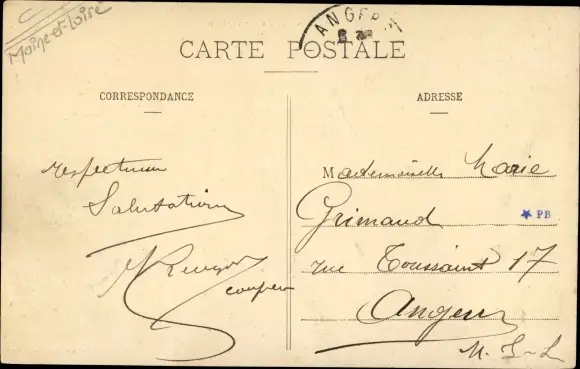 Maine-et-Loire
ANGERS
CARTE POSTALE
CORRESPONDANCE
ADRESSE
respectueuses
Salutations
Mademoiselle Marie
Grimaud
PB
rue Toussaint 17
Angers
M.-L-L